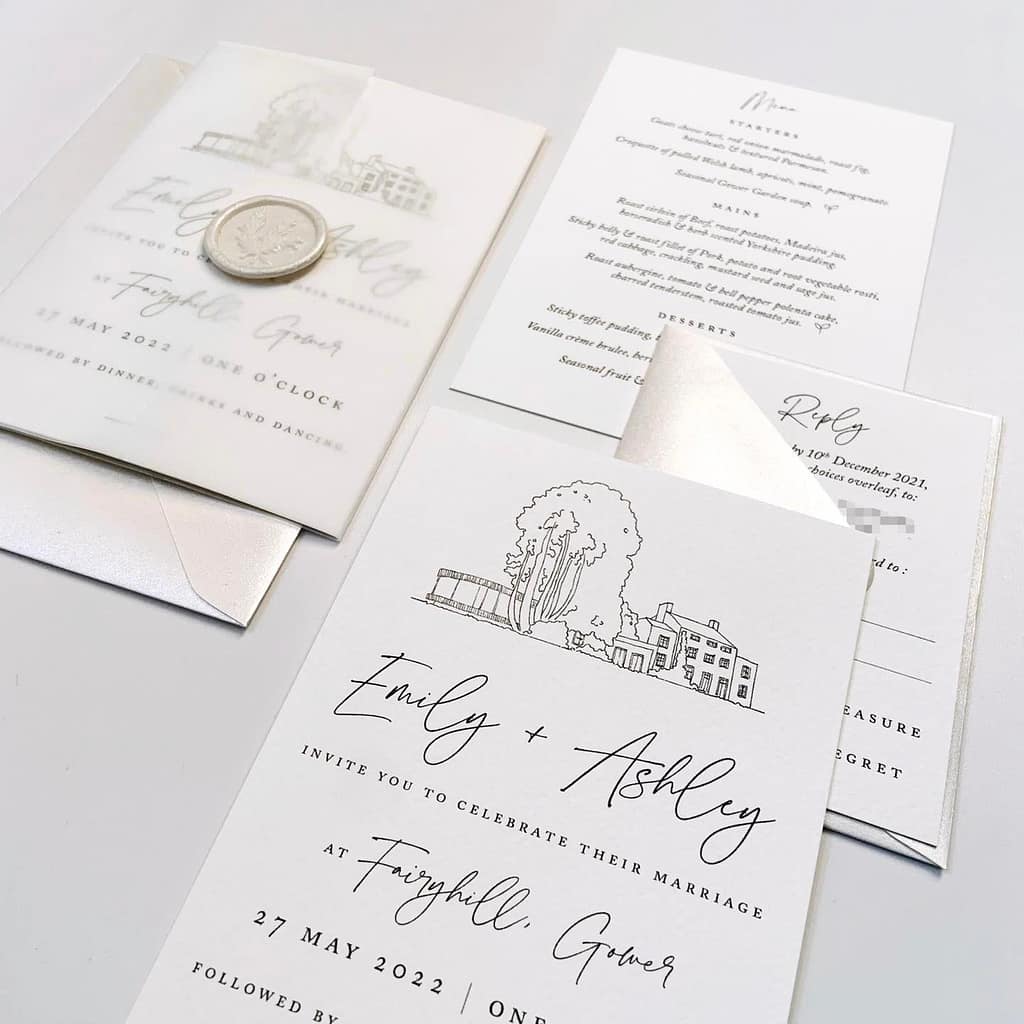 Emily
Ashley
INVITE YOU TO
THEIR MARRIAGE
AT Fairyhill, Gower
27 MAY 2022 | ONE O'CLOCK
FOLLOWED BY DINNER, DRINKS AND DANCING
Menu
STARTERS
Goats cheese tart, red onion marmalade, roast fig,
hazelnuts & textured Parmesan.
Croquette of pulled Welsh lamb, apricots, mint, pomegranate
Seasonal Gower Garden soup.
MAINS
Roast sirloin of Beef, roast potatoes, Madeira jus,
horseradish & herb scented Yorkshire pudding.
Sticky belly & roast fillet of Pork, potato and root vegetable rosti,
red cabbage, crackling, mustard seed and sage jus.
Roast aubergine, tomato & bell pepper polenta cake,
charred tenderstem, roasted tomato jus.
DESSERTS
Sticky toffee pudding,
Vanilla crème brulee,
Seasonal fruit &
Reply
by 10th December 2021,
choices overleaf, to:
to :
EASURE
EGRET
Emily + Ashley
INVITE YOU TO CELEBRATE THEIR MARRIAGE
AT Fairyhill, Gower
27 MAY 2022 | ONE
FOLLOWED BY